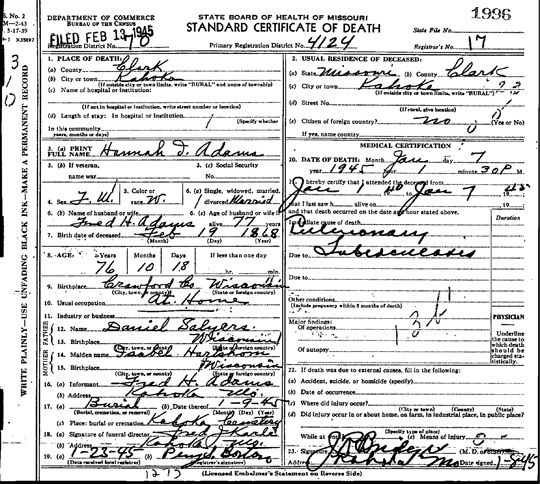 S. No. 2
DEPARTMENT OF COMMERCE
BUREAU OF THE CENSUS
STATE BOARD OF HEALTH OF MISSOURI
STANDARD CERTIFICATE OF DEATH
1996
State File No.
FILED FEB 13 1945
Registration District No. 70
Primary Registration District No. 4124
Registrar's No. 17
WRITE PLAINLY—USE UNFADING BLACK INK—MAKE A PERMANENT RECORD
1. PLACE OF DEATH:
(a) County Clark
(b) City or town Kahoka
(If outside city or town limits, write "RURAL" and name of township)
(c) Name of hospital or institution:
(If not in hospital or institution, write street number or location)
(d) Length of stay: In hospital or institution
(Specify whether
In this community
years, months or days)
3. (a) PRINT FULL NAME Hannah D. Adams
3. (b) If veteran, name war
3. (c) Social Security No.
4. Sex F.
5. Color or race W.
6. (a) Single, widowed, married, divorced Married
6. (b) Name of husband or wife Fred H. Adams
6. (c) Age of husband or wife if alive 77 years
7. Birth date of deceased Feb 19 1868
(Month) (Day) (Year)
8. AGE: Years Months Days If less than one day
76 10 18 hr. min.
9. Birthplace Crawford Co Wisconsin
(City, town, or county) (State or foreign country)
10. Usual occupation At Home
11. Industry or business
FATHER
12. Name Daniel Salyers
13. Birthplace Wisconsin
(City, town, or county) (State or foreign country)
MOTHER
14. Maiden name Isabel Hartshorn
15. Birthplace Wisconsin
(City, town, or county) (State or foreign country)
16. (a) Informant Fred H. Adams
(b) Address Kahoka Mo.
17. (a) Burial (b) Date thereof 1-09-45
(Burial, cremation, or removal) (Month) (Day) (Year)
(c) Place: burial or cremation Kahoka Cemetery
18. (a) Signature of funeral director Fred
(b) Address Kahoka Mo.
19. (a) 1-23-45 (b)
(Date received local registrar) (Registrar's signature)
2. USUAL RESIDENCE OF DECEASED:
(a) State Missouri (b) County Clark
(c) City or town Kahoka
(If outside city or town limits, write "RURAL")
(d) Street No.
(If rural, give location)
(e) Citizen of foreign country? no (Yes or No)
If yes, name country
MEDICAL CERTIFICATION
20. DATE OF DEATH: Month Jan day 7
year 1945 minute 30 P M.
21. I hereby certify that I attended the deceased
Jan 1 Jan 7 45
that I last saw h alive on 19
and that death occurred on the date and hour stated above.
Duration
Immediate cause of death Pulmonary
Due to Tuberculosis
Due to
Other conditions
(Include pregnancy within 3 months of death)
Major findings:
Of operations
Of autopsy
PHYSICIAN
Underline the cause to which death should be charged statistically.
22. If death was due to external causes, fill in the following:
(a) Accident, suicide, or homicide (specify)
(b) Date of occurrence
(c) Where did injury occur?
(City or town) (County) (State)
(d) Did injury occur in or about home, on farm, in industrial place, in public place?
(Specify type of place)
While at (e) Means of injury
23. Signature (M. D. or
Address Kahoka Mo Date signed 1-8-45
(Licensed Embalmer's Statement on Reverse Side)